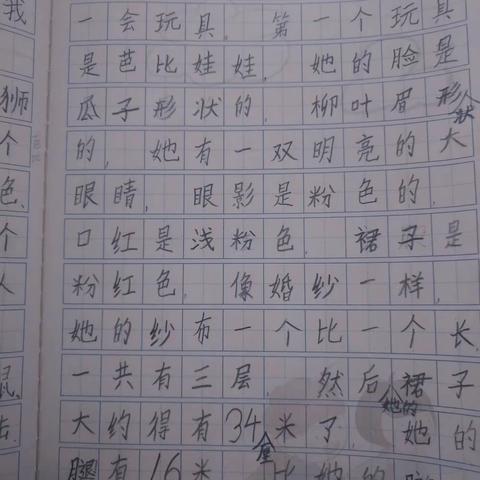 我
一会玩具。第一个玩具
是芭比娃娃，她的脸是
狮
瓜子形状的，柳叶眉形状
个
的，她有一双明亮的大
色、
眼睛，眼影是粉色的，
个
口红是浅粉色，裙子是
人
粉红色，像婚纱一样，
她的纱布一个比一个长，
鼠、
一共有三层，然后她的裙子
大约得有34厘米了，她的
腿有16米